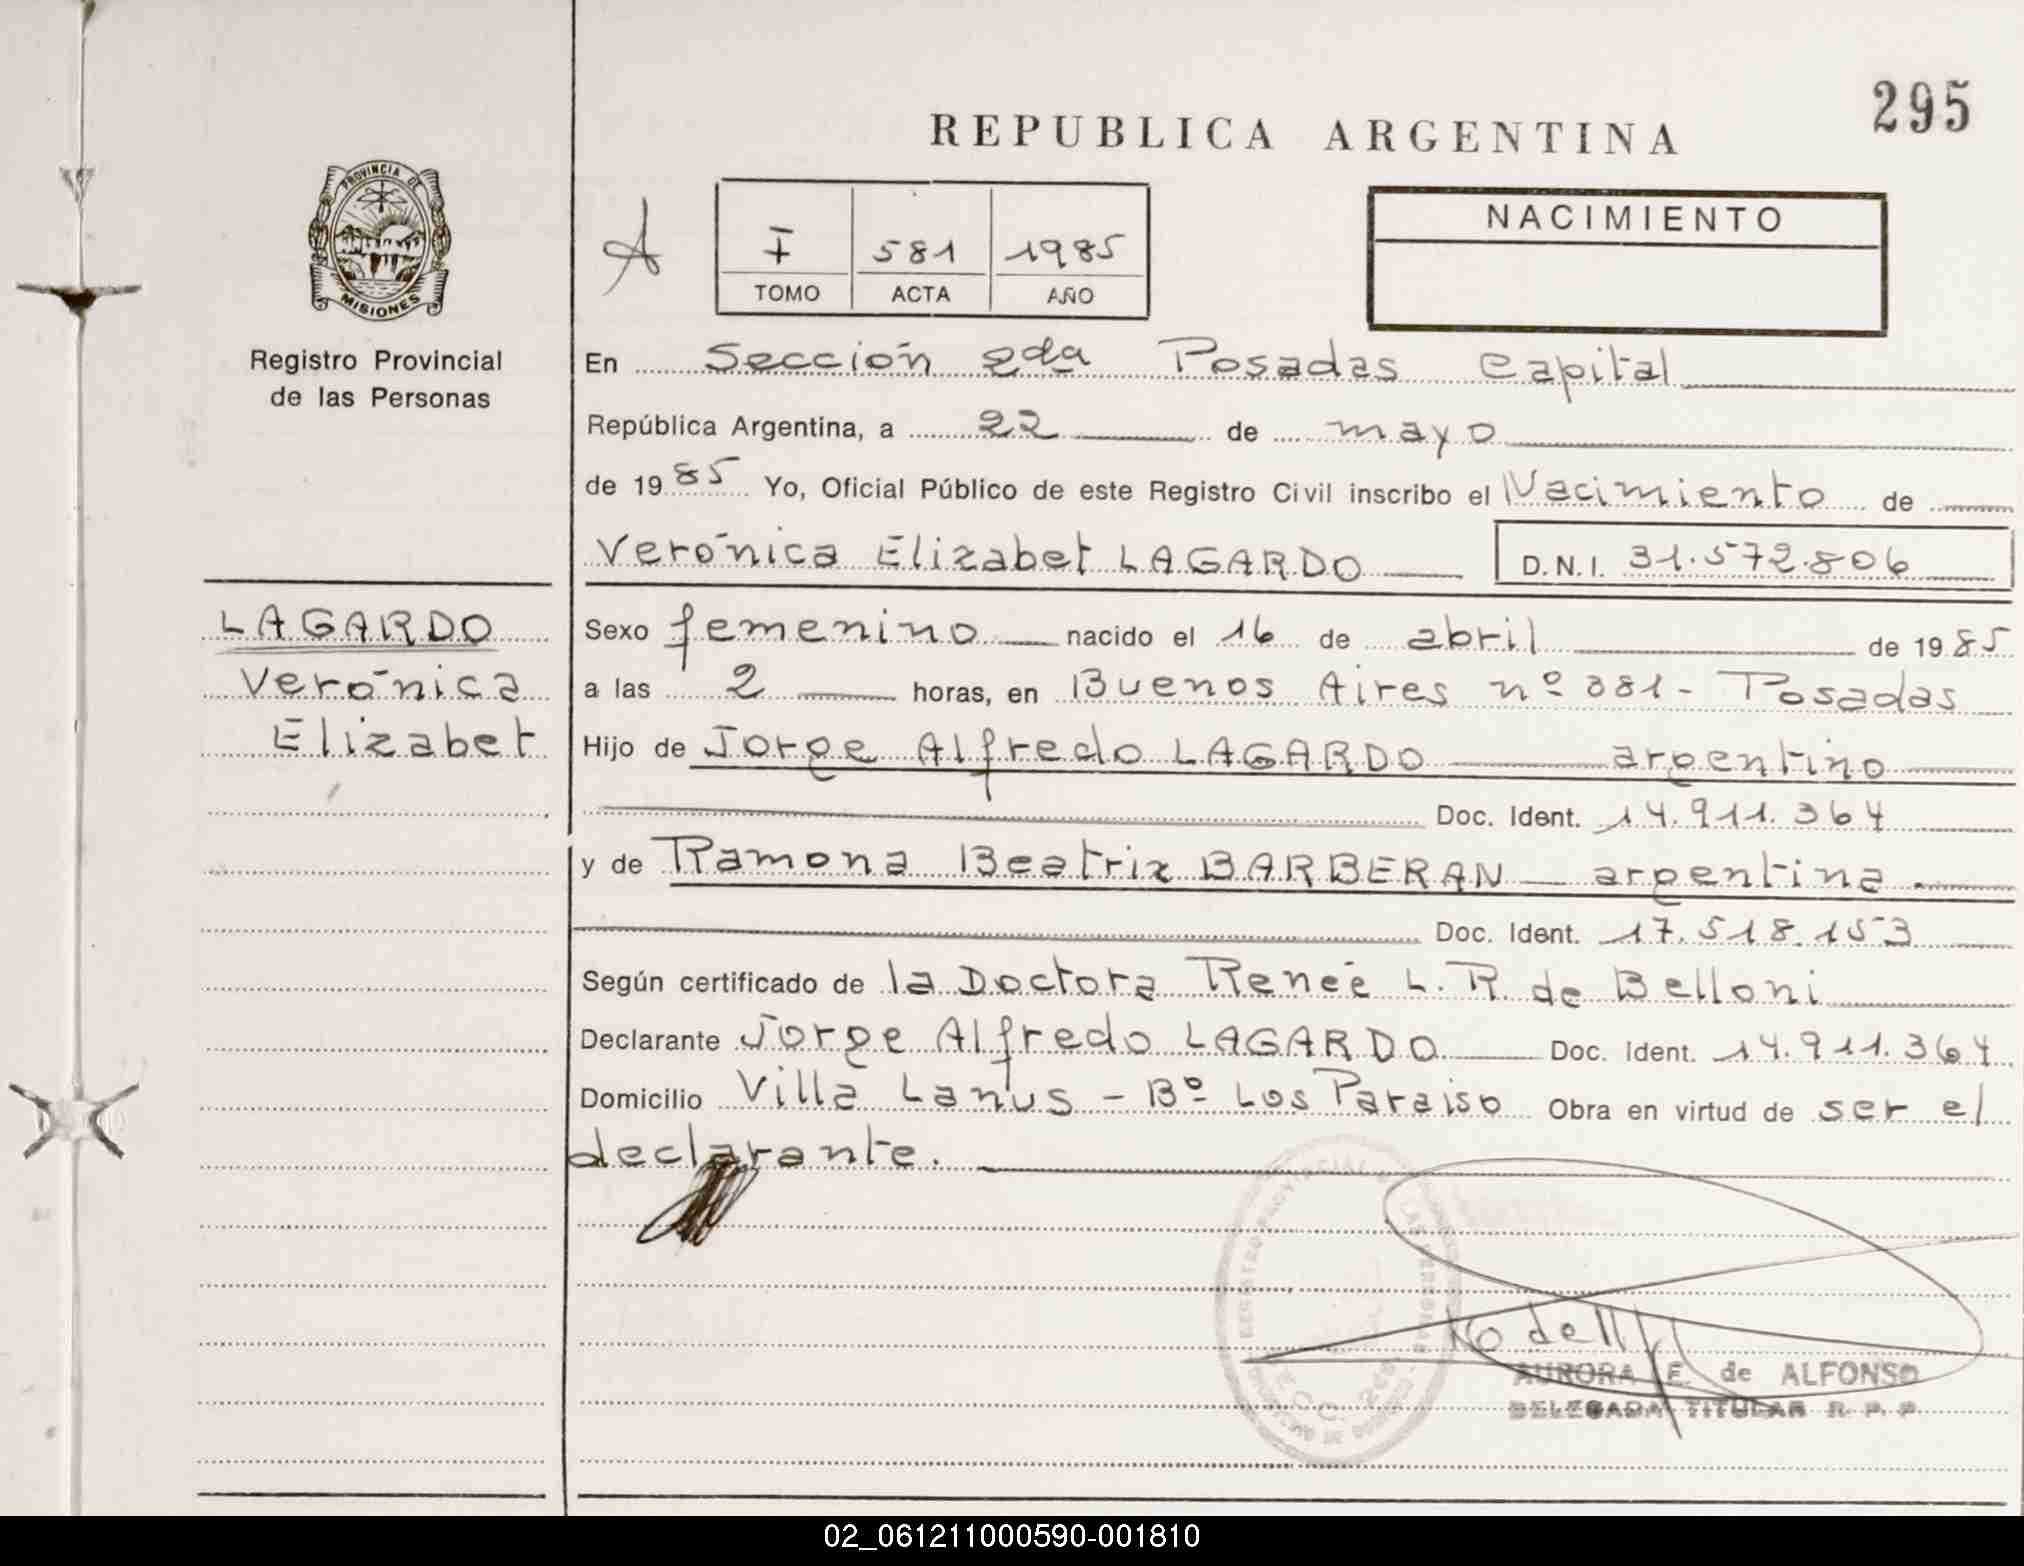 295
REPUBLICA ARGENTINA
PROVINCIA DE
MISIONES
Registro Provincial
de las Personas
A
I 581 1985
TOMO ACTA AÑO
NACIMIENTO
En Sección 2da Posadas Capital
República Argentina, a 22 de mayo
de 1985 Yo, Oficial Público de este Registro Civil inscribo el Nacimiento de
Verónica Elizabet LAGARDO D.N.I. 31.572.806
LAGARDO
Verónica
Elizabet
Sexo femenino nacido el 16 de abril de 1985
a las 2 horas, en Buenos Aires nº 881 - Posadas
Hijo de Jorge Alfredo LAGARDO argentino
Doc. Ident. 14.911.364
y de Ramona Beatriz BARBERAN argentina.
Doc. Ident. 17.518.153
Según certificado de la Doctora Reneé L. R. de Belloni
Declarante Jorge Alfredo LAGARDO Doc. Ident. 14.911.364
Domicilio Villa Lanús - Bº Los Paraiso Obra en virtud de ser el
declarante.
AURORA E. de ALFONSO
DELEGADA TITULAR R. P. P.
02_061211000590-001810